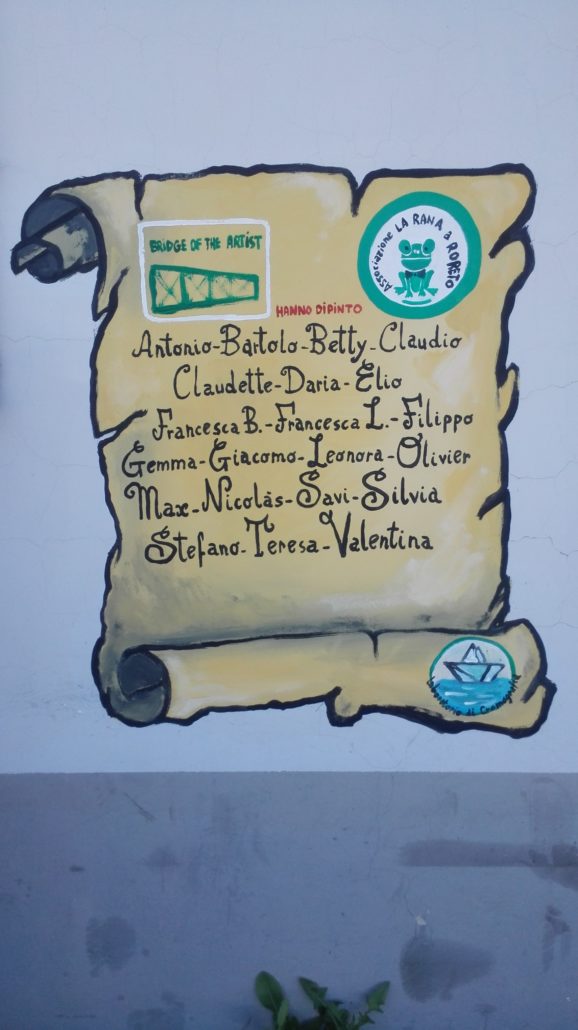 BRIDGE OF THE ARTIST
Associazione LA RANA a ROBETO
HANNO DIPINTO
Antonio-Bartolo-Betty-Claudio
Claudette-Daria-Elio
Francesca B.-Francesca L.-Filippo
Gemma-Giacomo-Leonora-Olivier
Max-Nicolàs-Savi-Silvia
Stefano-Teresa-Valentina
di